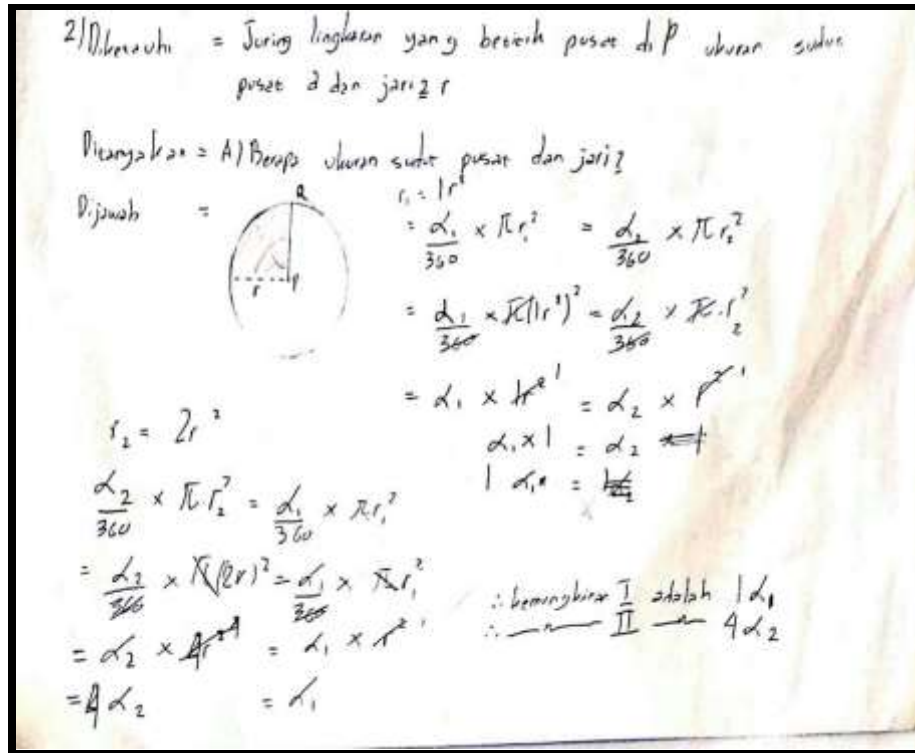 2) Diketauhi = Juring lingkaran yang betitik pusat di P ukuran sudut
pusat α dan jari2 r
Ditanyakan = A) Berapa ukuran sudut pusat dan jari2
Dijawab =
R
r P
r₁ = 1r²
= α₁/360 × πr₁² = α₂/360 × πr₂²
= α₁/360 × π(1r²)² = α₂/360 × π.r₂²
= α₁ × 1r² ¹ = α₂ × r² ¹
α₁ × 1 = α₂
1 α₁ =
r₂ = 2r²
α₂/360 × πr₂² = α₁/360 × πr₁²
= α₂/360 × π(2r)² = α₁/360 × πr₁²
= α₂ × 4r² ⁴ = α₁ × r² ¹
= 4 α₂ = α₁
∴ kemungkinan I adalah 1α₁
∴ —〃— II —〃— 4α₂